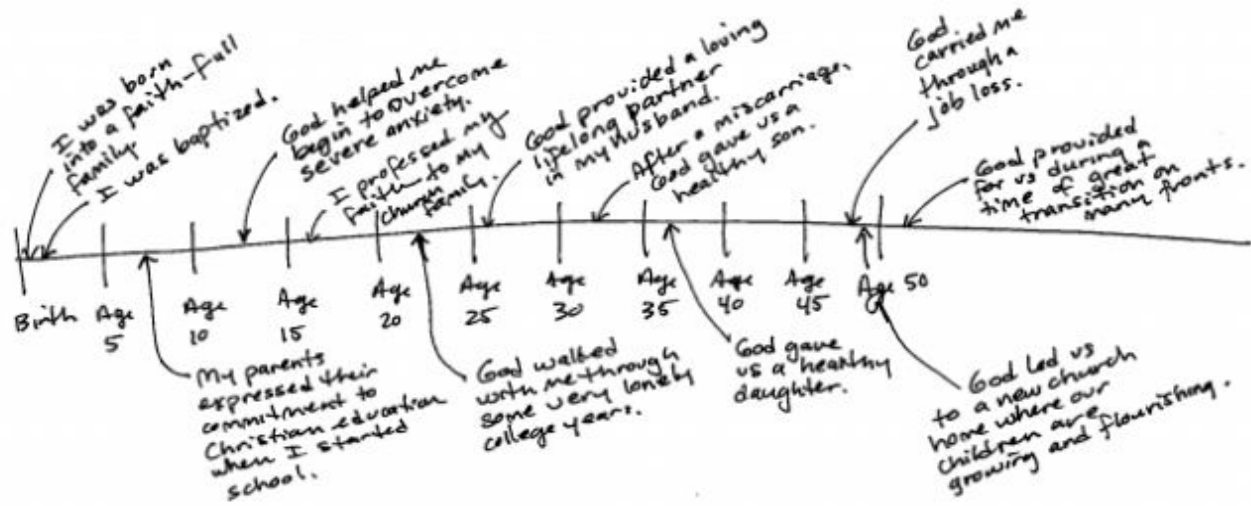 I was born
into a faith-full
family.
I was baptized.
God helped me
begin to overcome
severe anxiety.
I professed my
faith to my
church
family.
God provided a loving
lifelong partner
in my husband.
After a miscarriage,
God gave us a
healthy son.
God
carried me
through a
job loss.
God provided
for us during a
time of great
transition on
many fronts.
Birth
Age
5
Age
10
Age
15
Age
20
Age
25
Age
30
Age
35
Age
40
Age
45
Age 50
My parents
expressed their
commitment to
Christian education
when I started
school.
God walked
with me through
some very lonely
college years.
God gave
us a healthy
daughter.
God led us
to a new church
home where our
children are
growing and flourishing.